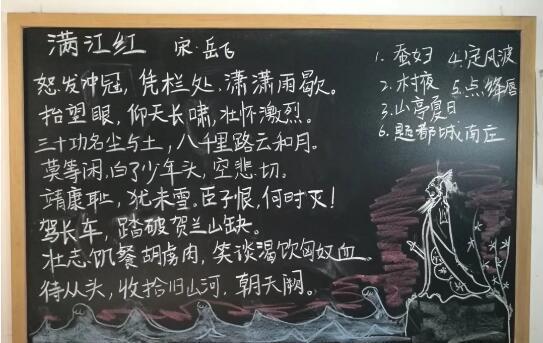 满江红 宋·岳飞
怒发冲冠，凭栏处，潇潇雨歇。
抬望眼，仰天长啸，壮怀激烈。
三十功名尘与土，八千里路云和月。
莫等闲，白了少年头，空悲切。
靖康耻，犹未雪，臣子恨，何时灭！
驾长车，踏破贺兰山缺。
壮志饥餐胡虏肉，笑谈渴饮匈奴血。
待从头，收拾旧山河，朝天阙。
1. 蚕妇 4.定风波
2. 村夜 5.点绛唇
3.山亭夏日
6. 题都城南庄